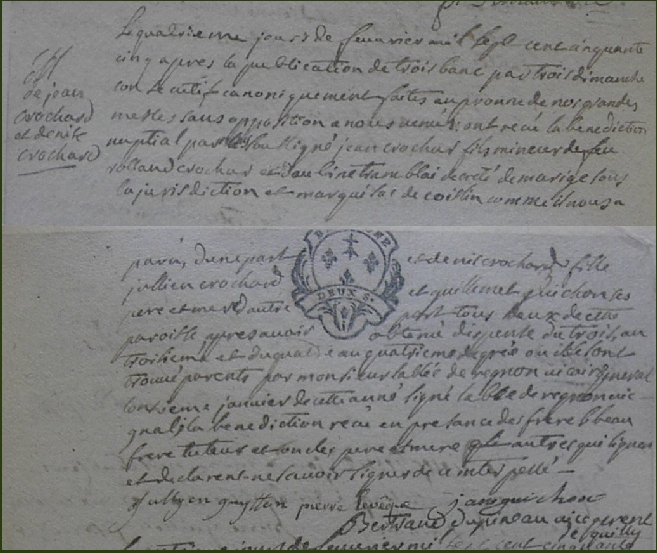 Le quatrieme jours de feuvrier mil sept cent cinquante
cinq apres la publication de trois banc par trois dimanche
consecutif canoniquement faites au pronne de nos grandes
messes sans opposition a nous venue: ont recu la benediction
nuptial par soussigné jean crochard fils mineur de feu
rolland crochar et d'aubine tramblai decrété de mariage sous
la jurisdiction et marquisac de coislin comme il nous a
M
de jean
crochard
et denise
crochard
paru, d'une part et denis crochard fille
jullien crochard et guillemet guichon ses
pere et mere d'autre part tous deux de cette
paroisse apres avoir obtenu dispense du trois au
troisieme et du quatre au quatrieme degrée ou ils se sont
trouvé parents par monsieur labbé de regnon vicair general
l'onsieme janvier de cette anné signé labbé de regnon vic
gnal; la benediction recu en presance des frere bbeau
frere tuteur et oncles pere et mere et autres qui signon
et declarent ne scavoir signer de ce interpellé
DEUX S.
jullyen guytton pierre levêque jan guichon
Bertrand